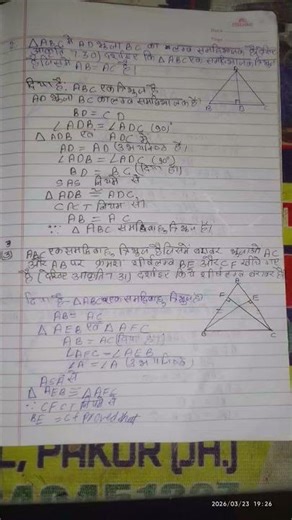 2. △ABC में AD भुजा BC का लम्ब समद्विभाजक है (देखिए
आकृति 7.30) दर्शाइए कि △ABC एक समद्विबाहु त्रिभुज
है जिसमें AB = AC है।
दिया है, ABC एक त्रिभुज है
AD भुजा BC का लम्ब समद्विभाजक है।
BD = CD
∠ADB = ∠ADC (90°)
△ADB एवं ADC में
AD = AD (उभयनिष्ठ है)
∠ADB = ∠ADC (90°)
BD = BC (दिया है)
SAS नियम से
△ADB ≅ ADC,
CPCT नियम से।
AB = AC
∵ △ABC समद्विबाहु त्रिभुज है।
A
B D C
(3) ABC एक समद्विबाहु त्रिभुज है जिसमें बराबर भुजाओं AC
और AB पर क्रमशः शीर्षलम्ब BE और CF खींचे गए
हैं (देखिए आकृति 7.31) दर्शाइए कि ये शीर्षलम्ब बराबर हैं
दिया है- △ABC एक समद्विबाहु त्रिभुज
AB = AC
△AEB एवं △AFC
AB = AC
∠AFC = ∠AEB
∠A = ∠A (उभयनिष्ठ)
ASA से
△AEB ≅ △AFC
∵ CPCT नियम से
BE = CF Proved that
A
F E
B C
L, PAKUR (JH.)
2026/03/23 19:26